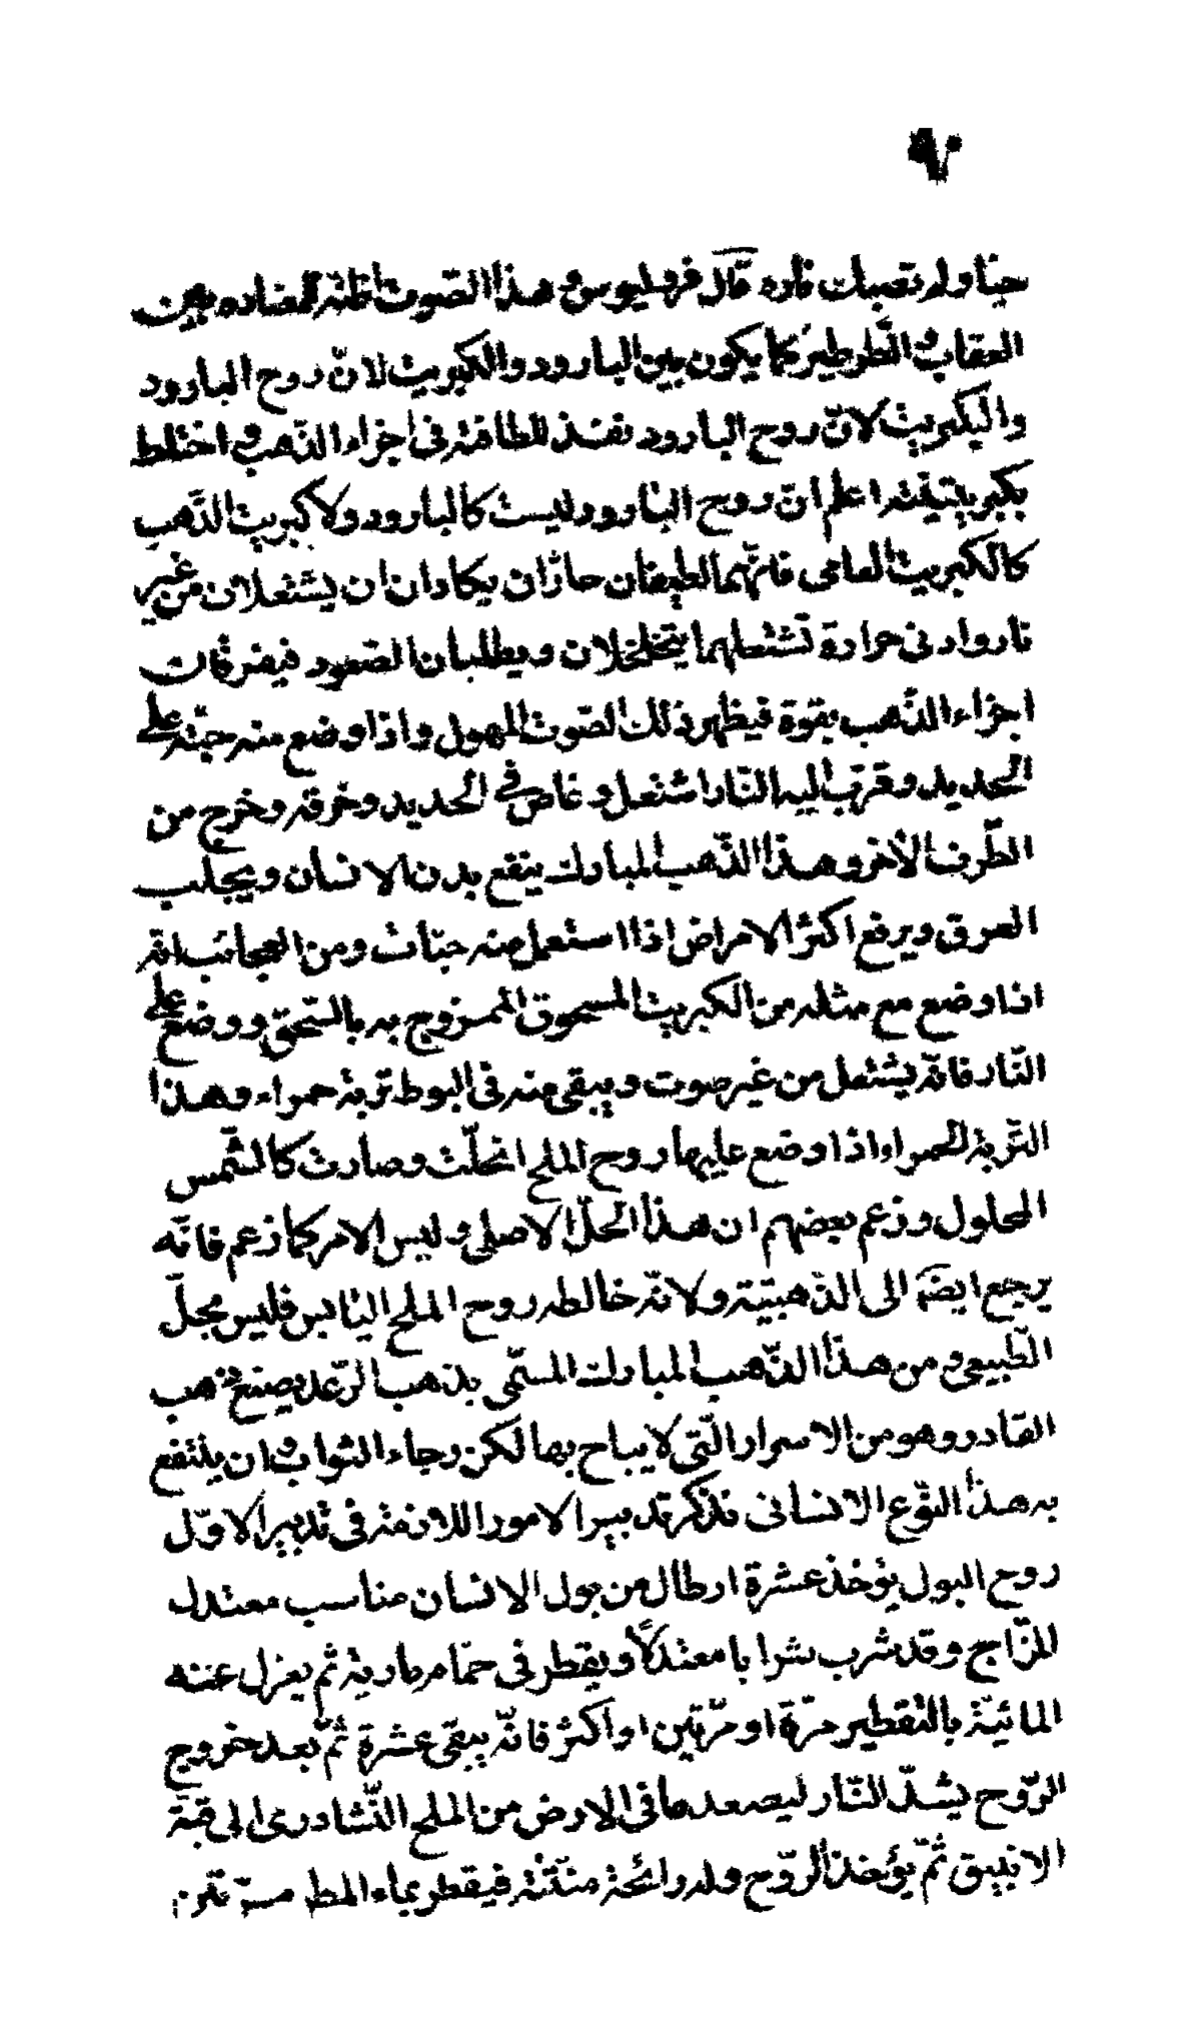 ٩٠
وله قال فروليوس وهذا الصوت المضاده بين
العقاب والطرطير كما يكون بين البارود والكبريت لانّ روح البارود
والبكبريت لانّ روح البارود نفذ للطافته فى اجزاء الذّهب و اختلط
بكبريتيته اعلم انّ روح البارود ليست كالبارود ولا كبريت الذّهب
كالكبريت العامى فانّهما لطيفان حارّان يكادان ان يشتعلان من غير
نار وادنى حرارة تشتعلهما يتخلخلان ويطلبان الصّعود فيفرقان
اجزاء الذّهب بقوة فيظهر ذلك الصّوت المهول واذا وضع منه حبّة على
الحديد وقرّب اليه النّار اشتعل وغاص في الحديد وخرقه وخرج من
الطّرف الأخر وهذا الذّهب المبارك ينقع بدن الانسان ويجلب
العرق ويرفع اكثر الامراض اذا استعمل منه حبّات ومن العجائب انّه
اذا وضع مع مثله من الكبريت المسحوق الممزوج به بالسّحق ووضع على
النّار فانّه يشتعل من غير صوت ويبقى منه فى البوط تربة حمراء وهذا
التّربة الحمراء اذا وضع عليها روح الملح انحلّت وصارت كالشّمس
المحلول وزعم بعضهم ان هذا الحلّ الاصلى وليس الامر كما زعم فانّه
يرجع ايضًا الى الذّهبيّة ولانّه خالطه روح الملح اليابس فليس بحلّ
الطّبيعى ومن هذا الذّهب المبارك المسمّى بذهب الرّعد يصنع ذهب
القادر وهو من الاسرار الّتى لا يباح بها لكن رجاء الثواب و ان ينتفع
به هذا النّوع الانسانى نذكر تدبير الامور اللازمة فى تدبير الاوّل
روح البول يؤخذ عشرة ارطال من بول الانسان مناسب معتدل
المزّاج وقد شرب شرابا معتدلًا ويقطر فى حمّام مارية ثم يعزل عنه
المائيّة بالتقطير مرّة او مرّتين او اكثر فانّه يبقى عشرة ثمّ بعد خروج
الرّوح يشدّ النّار ليصعد ما فى الارض من الملح النّشادرى الى قبّة
الانبيق ثمّ يؤخذ الرّوح وله رائحة منّتنة فيقطر بماء المطر مرّتين